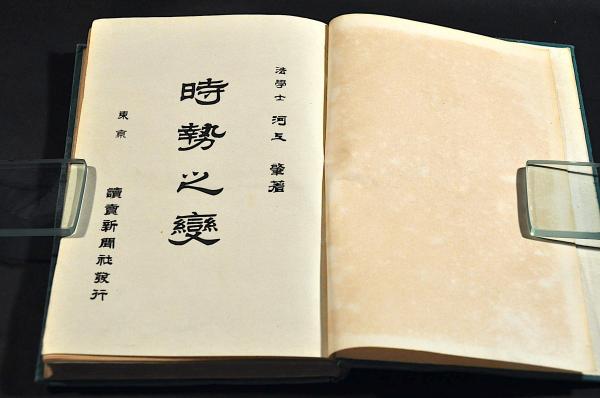 法學士 河上 肇著
時勢之變
東京 讀賣新聞社發行